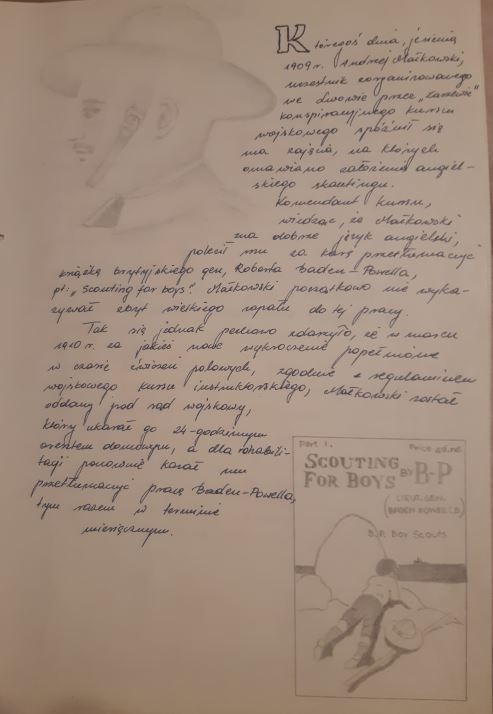 Któregoś dnia, jesienią
1909 r. Andrzej Małkowski,
uczestnik zorganizowanego
we Lwowie przez „Zarzewie"
konspiracyjnego kursu
wojskowego spóźnił się
na zajęcia, na których
omawiano założenia angiel-
skiego skautingu.
Komendant kursu,
wiedząc, że Małkowski
zna dobrze język angielski,
polecił mu za karę przetłumaczyć
książkę brytyjskiego gen. Roberta Baden-Powella,
pt: „Scouting for boys". Małkowski początkowo nie wyka-
zywał zbyt wielkiego zapału do tej pracy.
Tak się jednak pechowo zdarzyło, że w marcu
1910 r. za jakieś nowe wykroczenie popełnione
w czasie ćwiczeń polowych, zgodnie z regulaminem
wojskowego kursu instruktorskiego, Małkowski został
oddany pod sąd wojskowy,
który ukarał go 24-godzinnym
aresztem domowym, a dla rehabili-
tacji ponownie kazał mu
przetłumaczyć pracę Baden-Powella,
tym razem w terminie
miesięcznym.
Part 1.
Price 4d. net
SCOUTING
FOR BOYS BY B-P
(LIEUT. GEN.
BADEN POWELL C.B.)
B.P. Boy Scouts